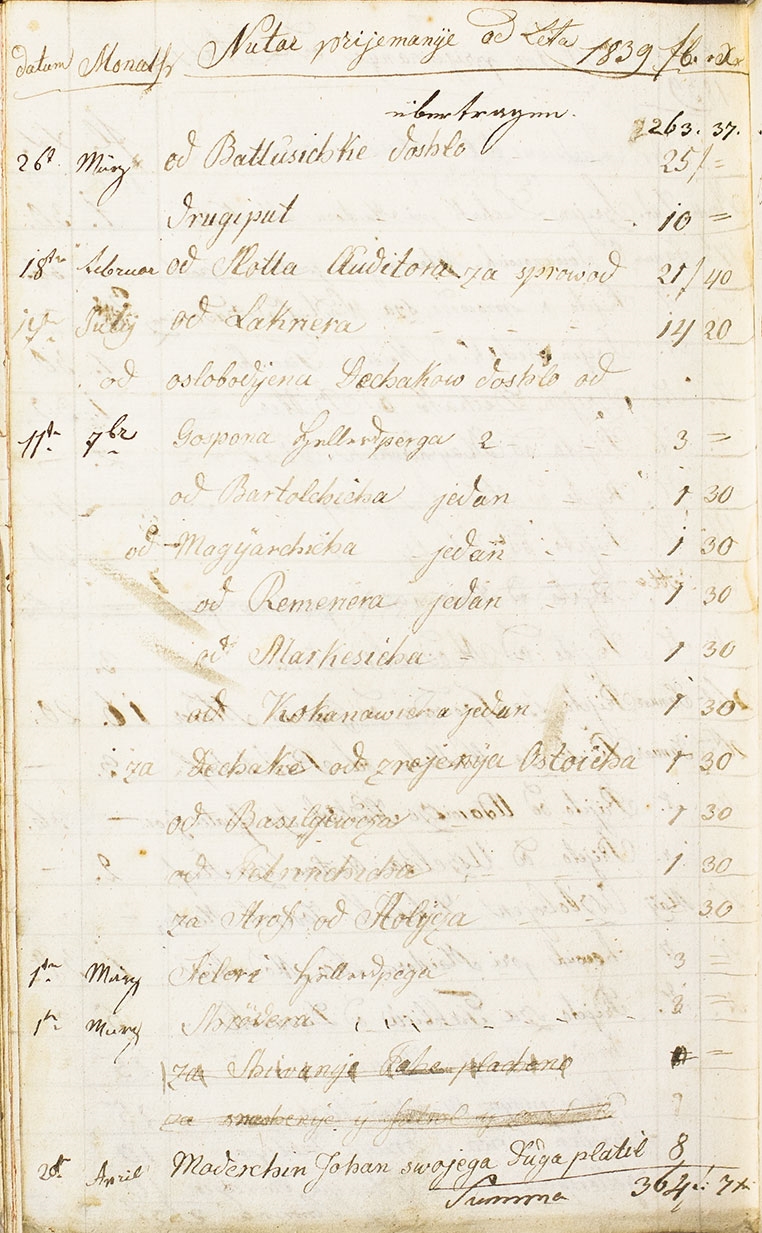 datum Monath Nutar prijemanje od Leta 1839 fl. x
übertragen. 263. 37.
26t März od Battusichke doshlo 25 / =
drugiput 10 =
18tn Februar od Kotta Auditora za sprowod 21 / 40
Julÿ od Laknera 14 20
od oslobodjena Dechakow doshlo od
11tn 7br Gospona 2 3 =
od Bartolchicha jedan 1 30
od Magÿarchicha jedan 1 30
od Remenera jedan 1 30
od Markesicha 1 30
od Kokanawicha jedan 1 30
za Dechake od Ostoicha 1 30
od 1 30
od 1 30
za Strof od 30
1tn März 3 =
1tn März 3 =
za Shiwanje placheno =
za
20t April Maderchin Johan swojega duga platil 8
Summa 364 7